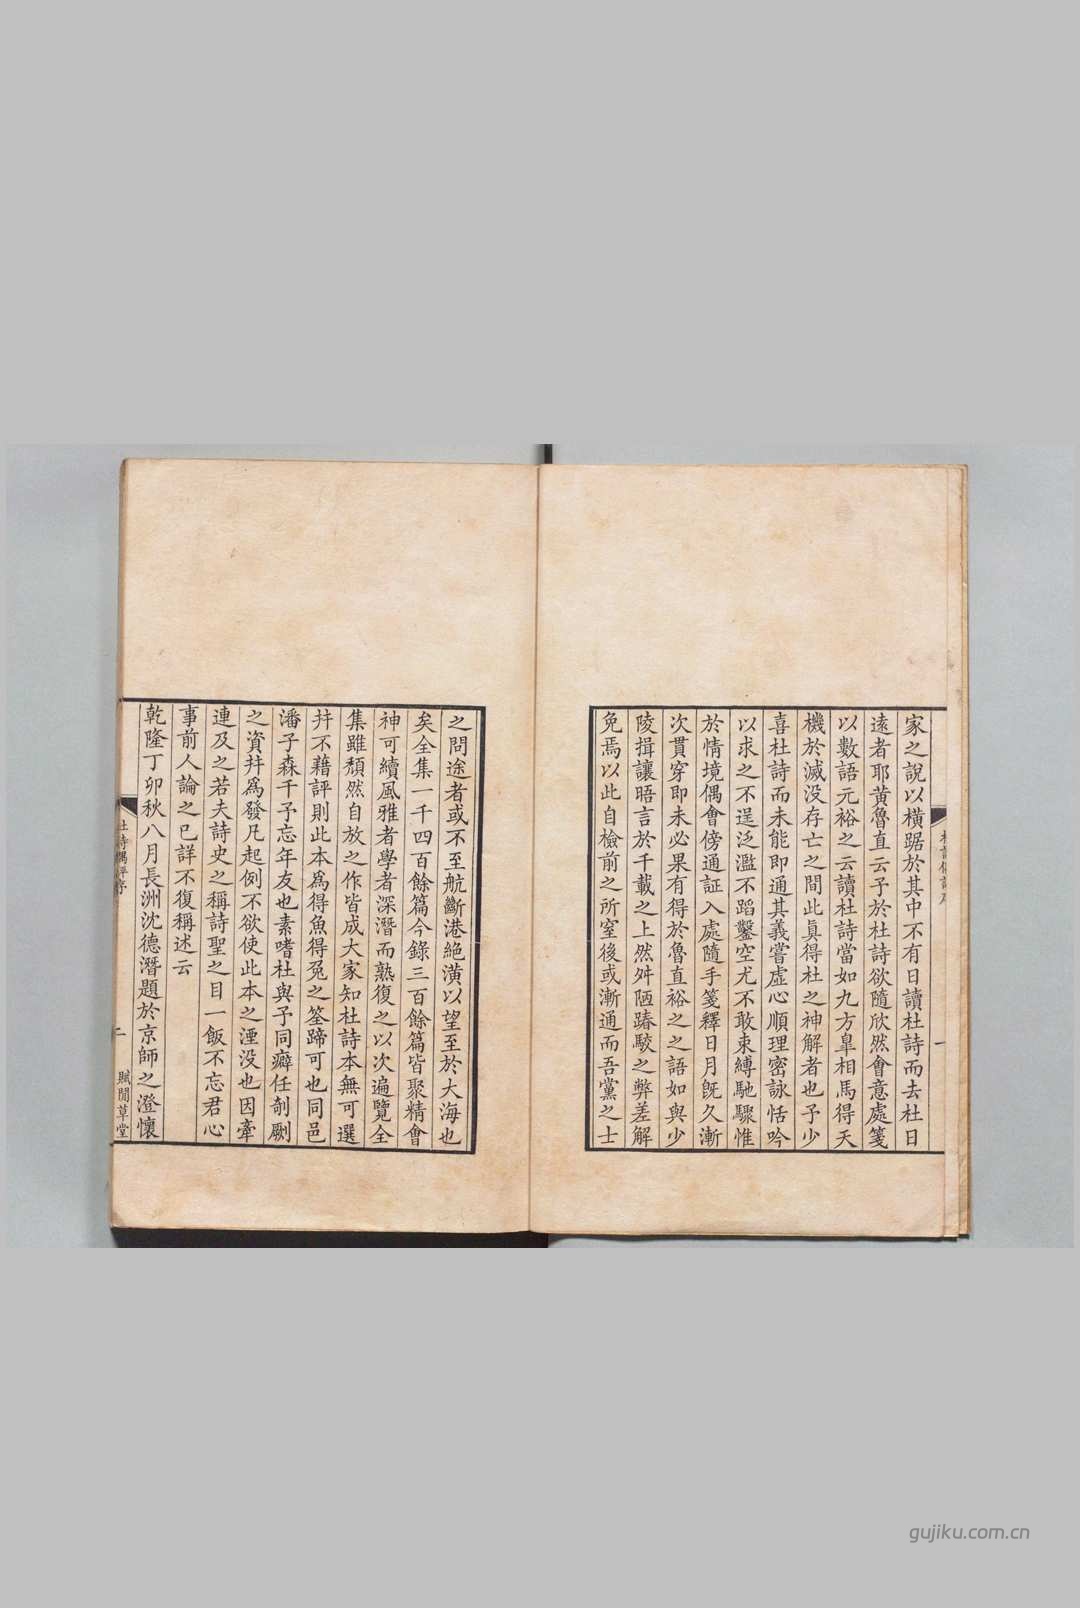 家之說以橫踞於其中不有日讀杜詩而去杜日
遠者耶黃魯直云子於杜詩欲隨欣然會意處箋
以數語元裕之云讀杜詩當如九方臯相馬得天
機於滅没存亡之間此眞得杜之神解者也予少
喜杜詩而未能即通其義嘗虛心順理密詠恬吟
以求之不逞泛濫不蹈鑿空尤不敢束縛馳驟惟
於情境偶會傍通証入處隨手箋釋日月既久漸
次貫穿即未必果有得於魯直裕之之語如與少
陵揖讓晤言於千載之上然舛陋踳駮之弊差解
免焉以此自檢前之所室後或漸通而吾黨之士
之問途者或不至航斷港絕潢以望至於大海也
矣全集一千四百餘篇今錄三百餘篇皆聚精會
神可續風雅者學者深潛而熟復之以次遍覽全
集雖頽然自放之作皆成大家知杜詩本無可選
幷不藉評則此本爲得魚得兔之筌蹄可也同邑
潘子森千予忘年友也素嗜杜與予同癖任剞劂
之資幷爲發凡起例不欲使此本之湮没也因牽
連及之若夫詩史之稱詩聖之目一飯不忘君心
事前人論之已詳不復稱述云
乾隆丁卯秋八月長洲沈德潛題於京師之澄懷
杜詩偶評序
二
賦閒草堂
gujiku.com.cn